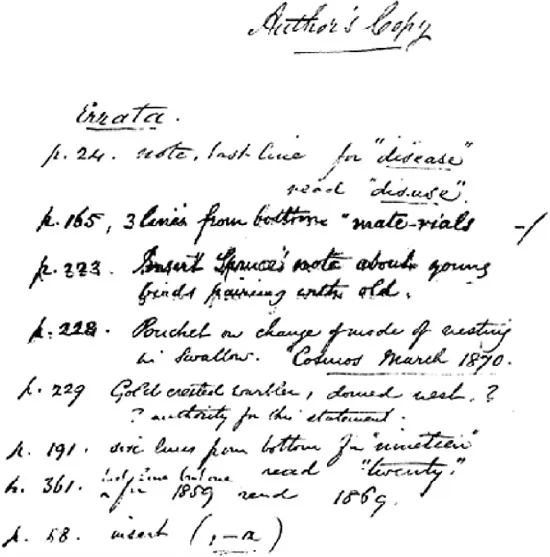 Author's Copy
Errata.
p. 24. note, last line for "disease"
read "disuse".
p. 165, 3 lines from bottom "mate-rials -/
p. 223. Insert Spruce's note about young
birds pairing with old.
p. 228. Pouchet on change of mode of nesting
in Swallow. Cosmos March 1870.
p. 229 Gold crested warbler, domed nest, ?
? authority for this statement.
p. 191. six lines from bottom for "nineteen"
read "twenty."
p. 361. last line but one
for 1859 read 1869.
p. 58. insert (, - a)